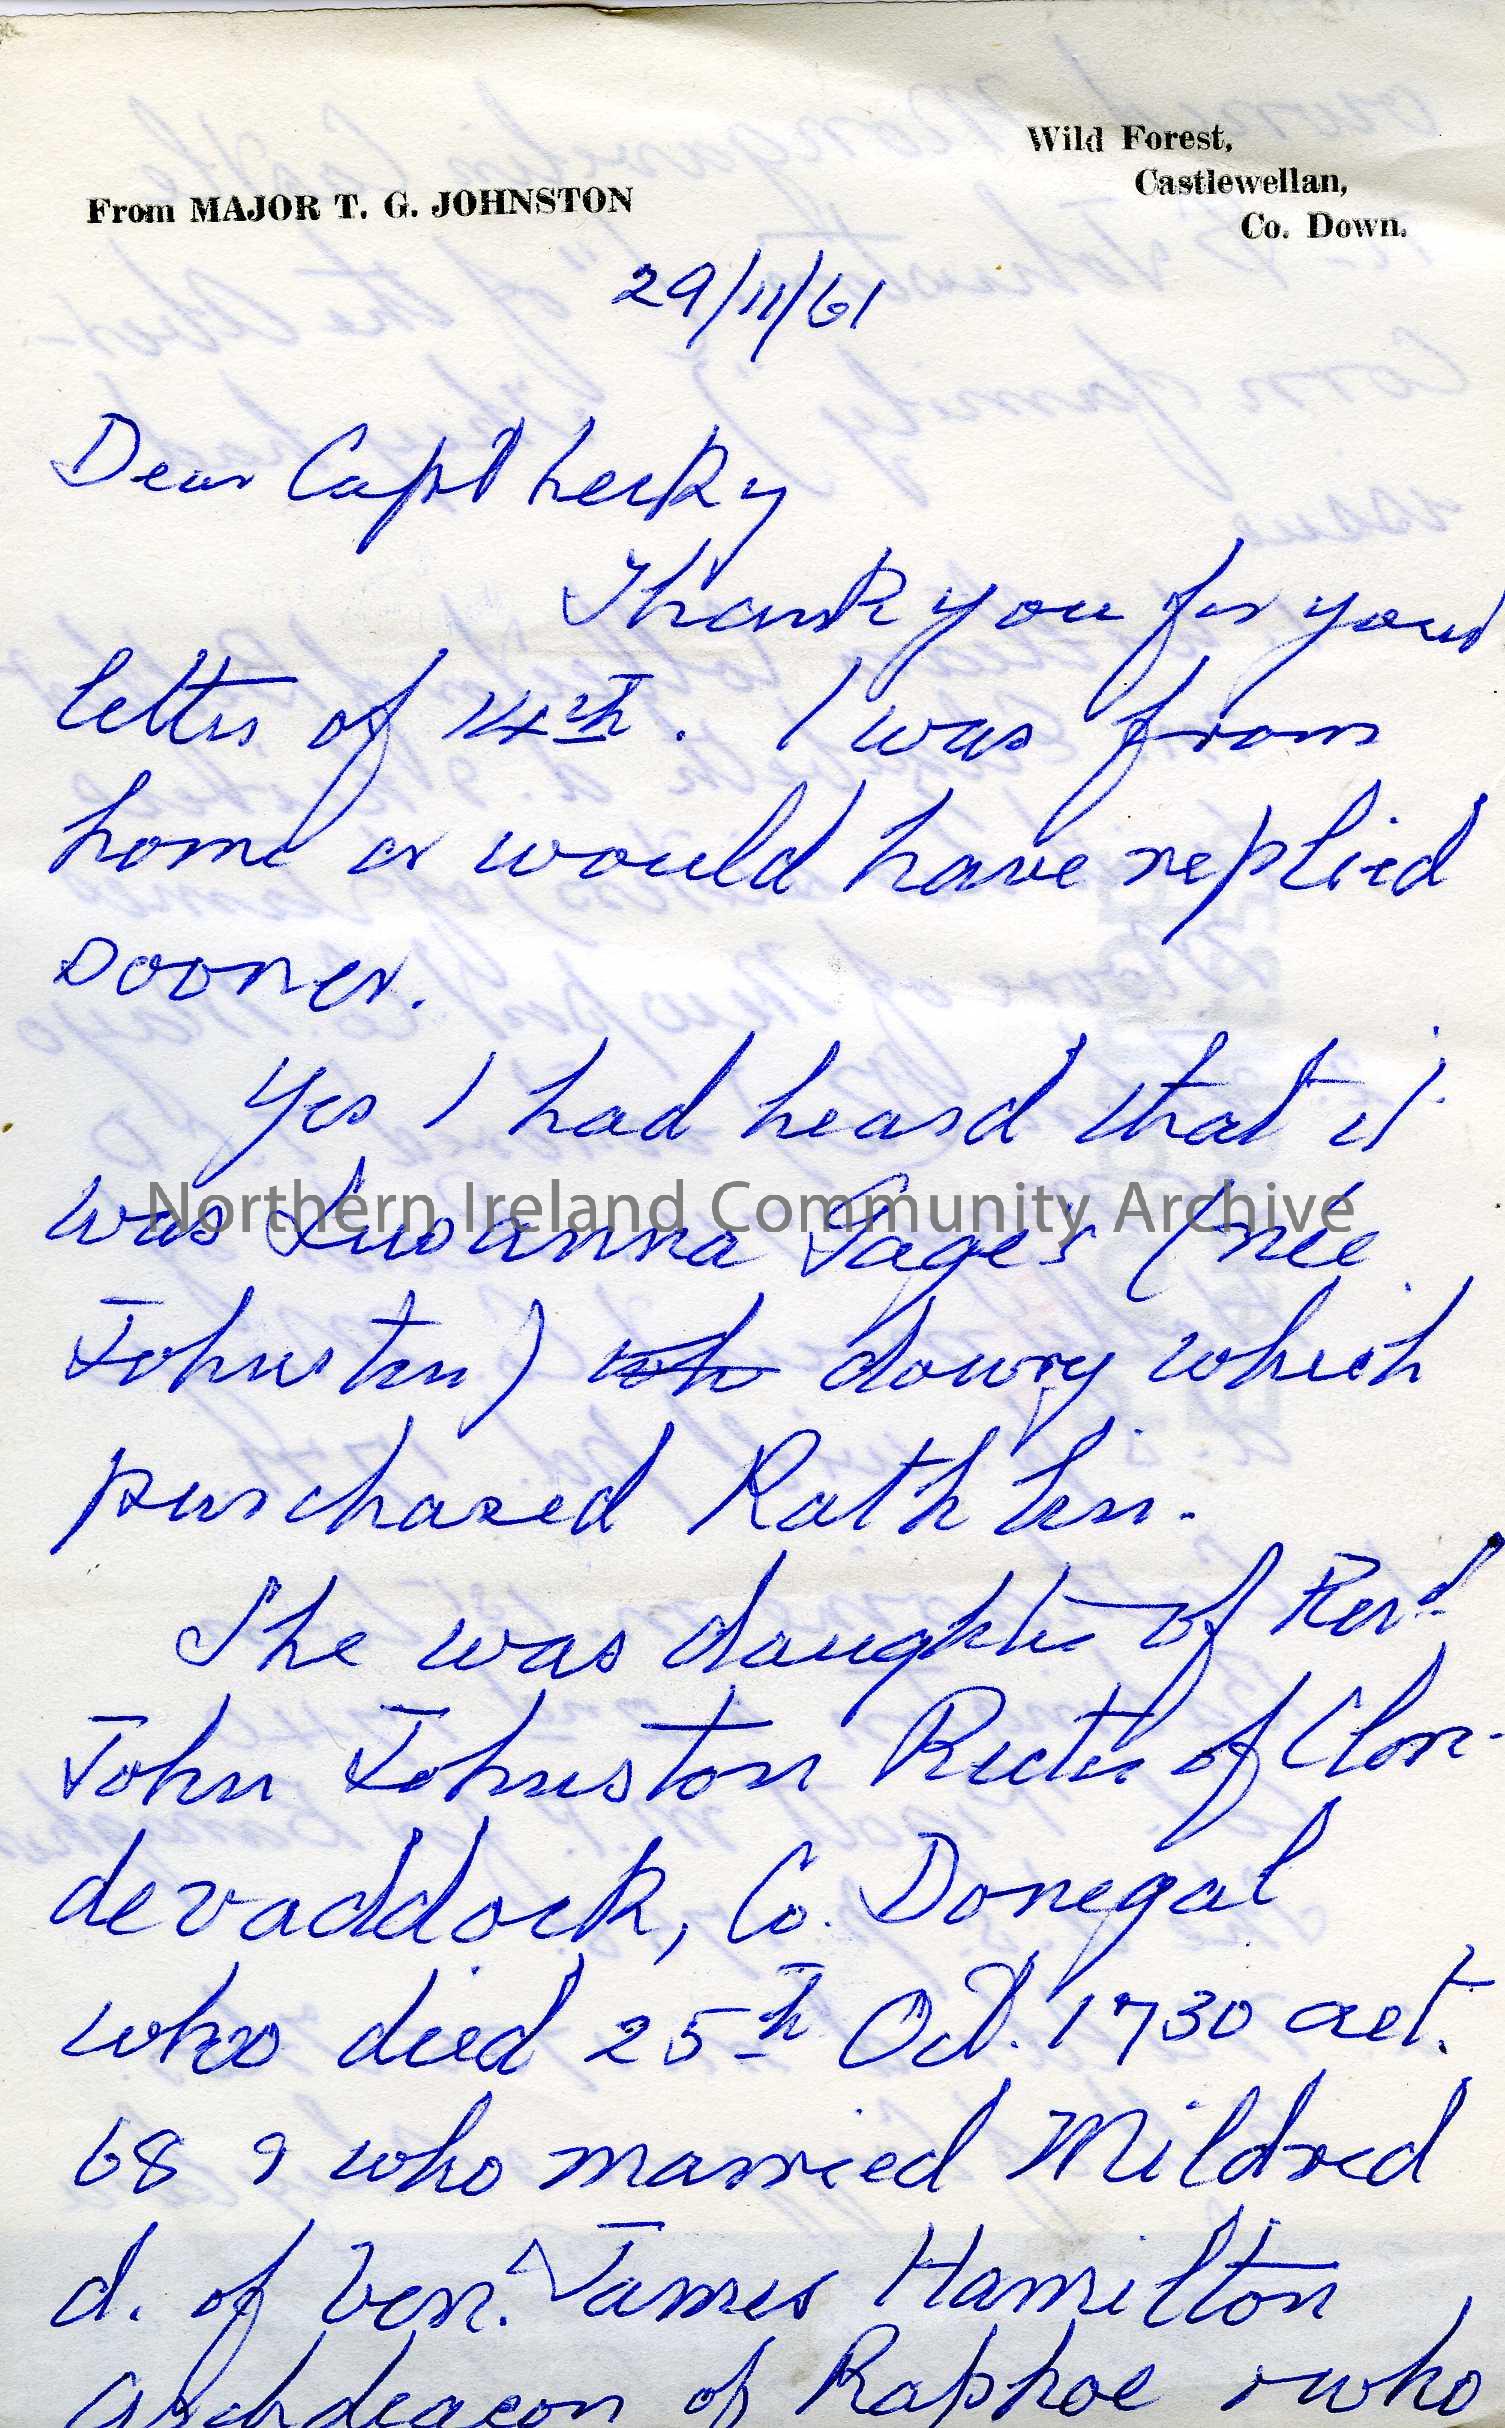 From MAJOR T. G. JOHNSTON
Wild Forest,
Castlewellan,
Co. Down.
29/11/61
Dear Capt Lecky
Thank you for your
letter of 14th. I was from
home or would have replied
sooner.
Yes I had heard that it
was Susanna Gage's (née
Johnston) wh dowry which
purchased Rathlin.
She was daughter of Revd.
John Johnston Rector of Clon-
devaddock, Co. Donegal
who died 25th Oct. 1730 aet.
68 & who married Mildred
d. of Ven. James Hamilton
Archdeacon of Raphoe & who
Northern Ireland Community Archive